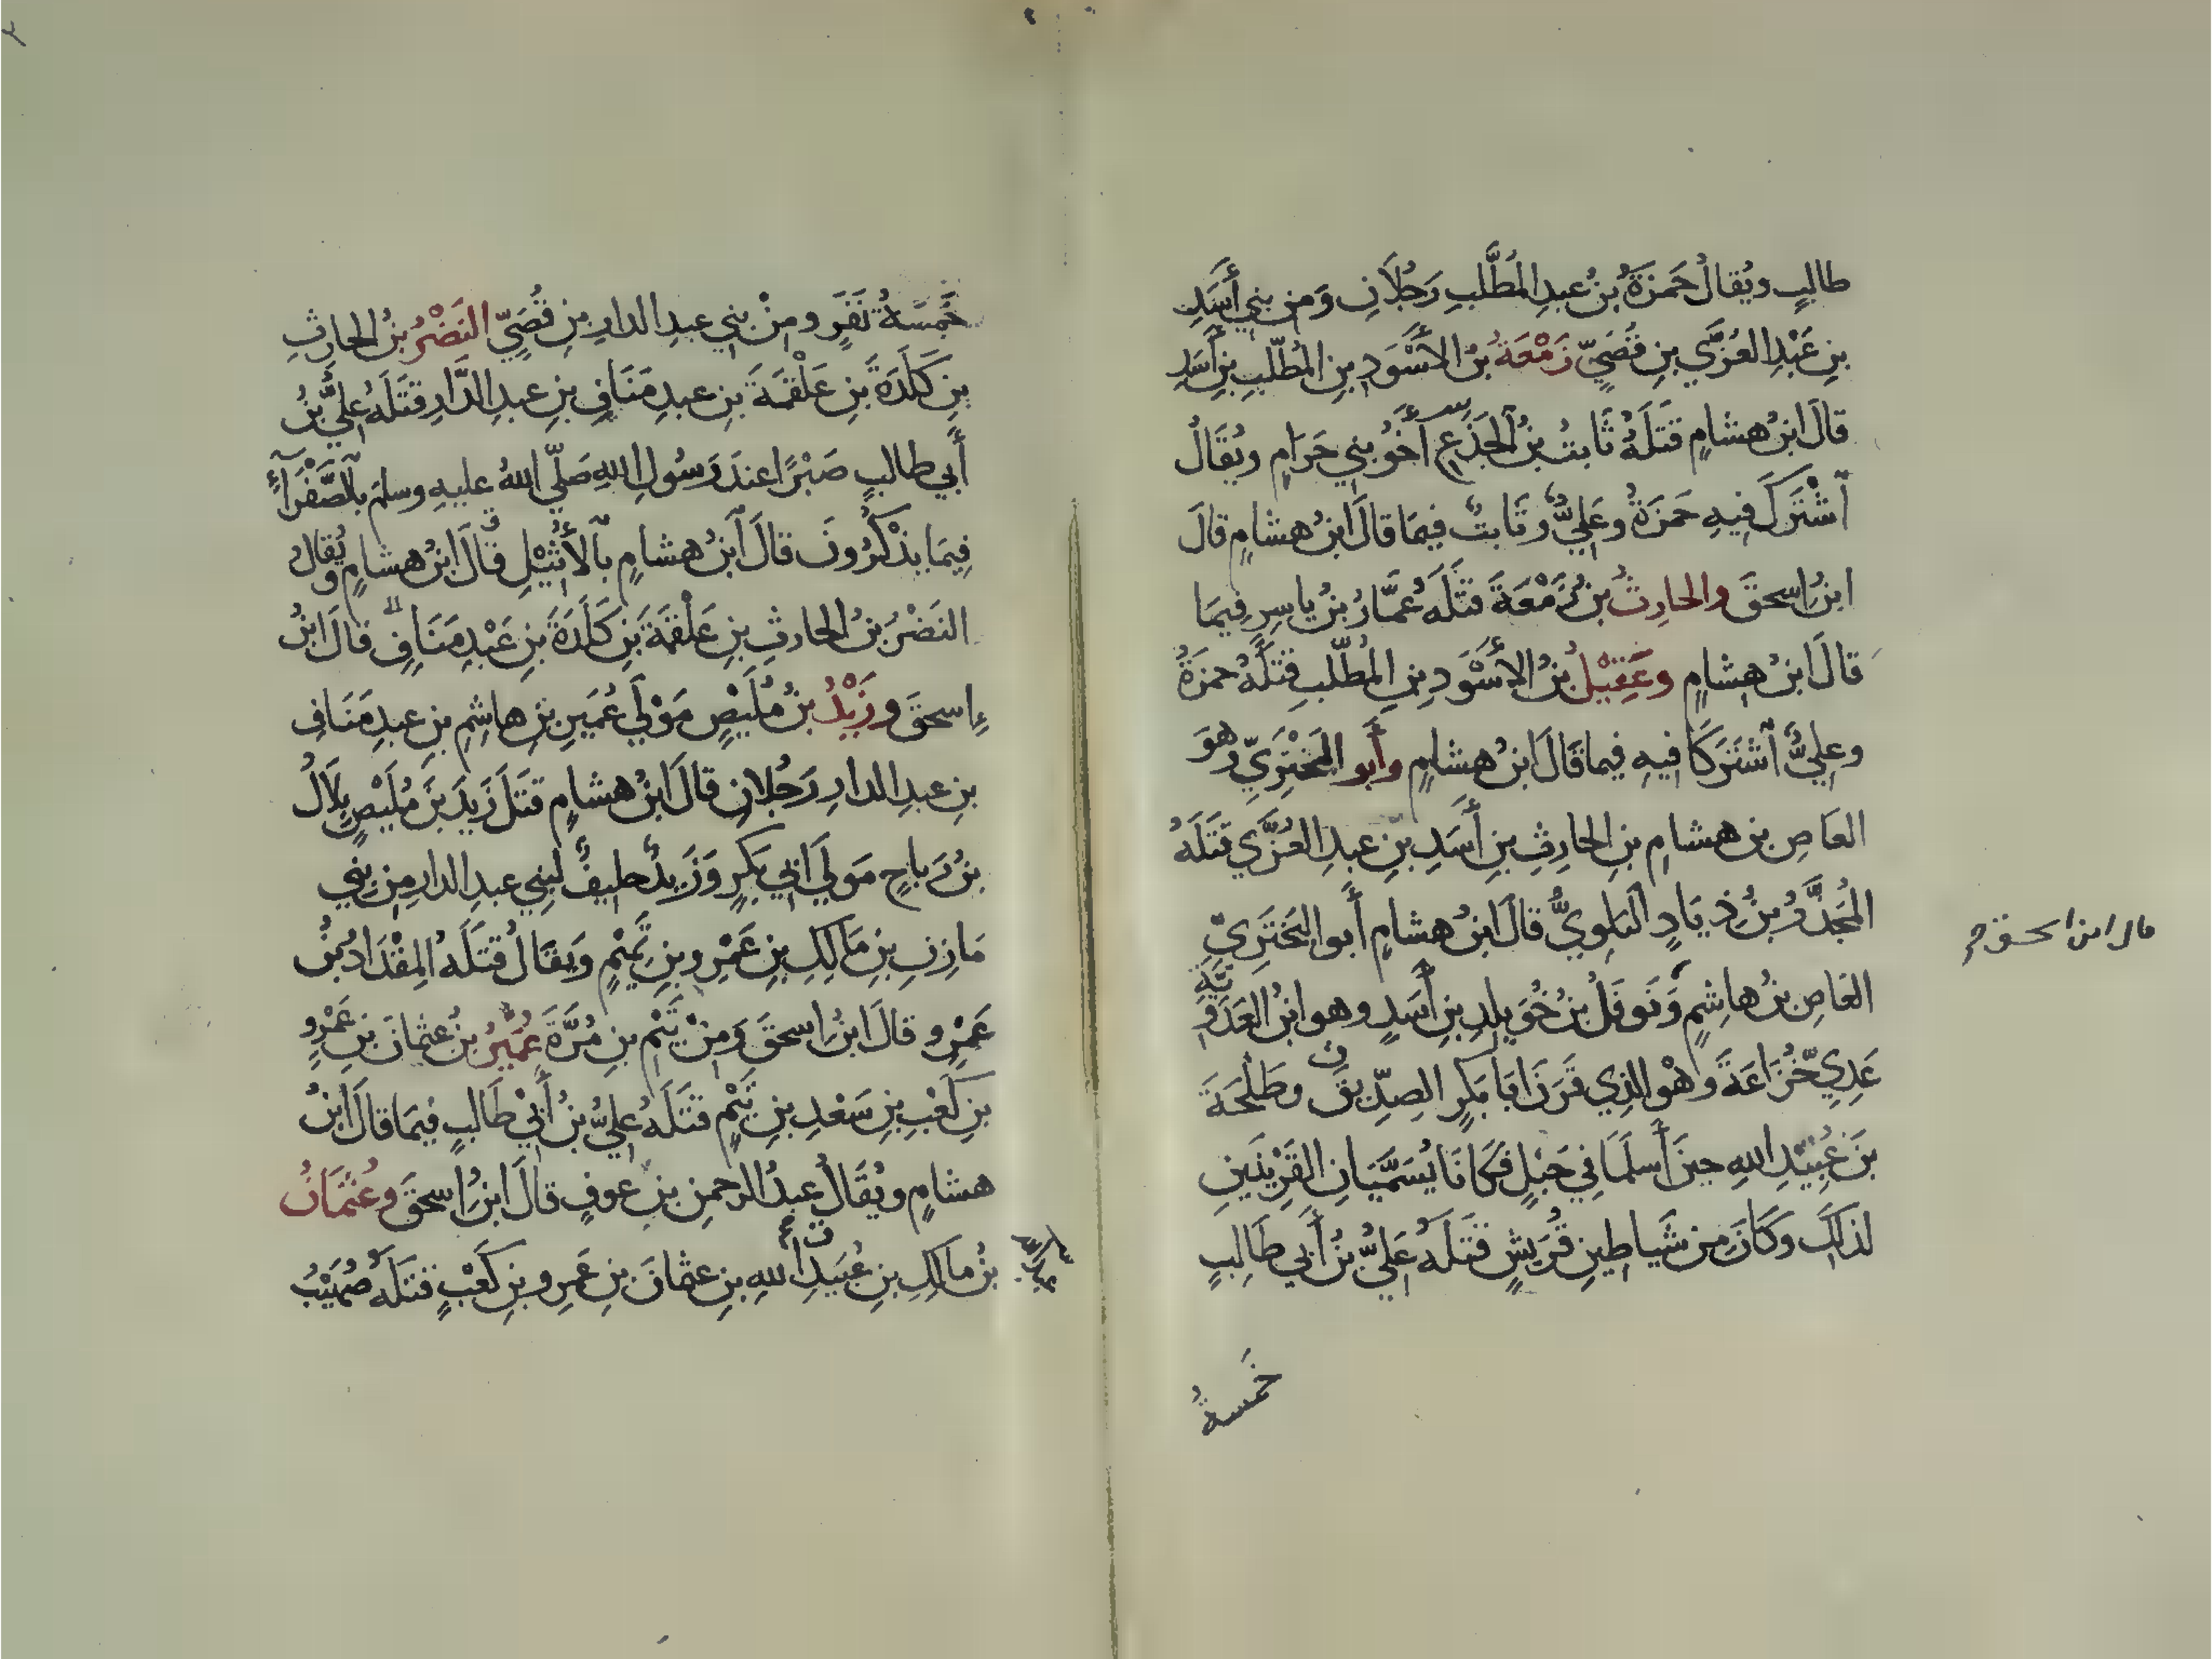 طالبٍ ويُقالُ حَمزَةُ بنُ عبدِ المُطَّلبِ رَجُلَانِ وَمن بني أَسَدِ
بنِ عَبْدِ العُزَّي بنِ قُصَيّ زَمْعَةُ بنُ الأَسْوَدِ بنِ المُطّلبِ بنِ أَسَدِ
قالَ ابنُ هشامٍ قَتَلَهُ ثَابتُ بنُ الجَذَعِ أَخُو بني حَرَامٍ ويُقَالُ
ٱشْتَرَكَ فيهِ حَمزَةُ وعَليٌّ وثَابتٌ فيمَا قالَ ابنُ هشامٍ قالَ
ابنُ اسحقَ والحارِثُ بنُ زَمْعَةَ قَتَلَهُ عمَّارُ بنُ ياسِرٍ فيمَا
قالَ ابنُ هشامٍ وعَقِيْلُ بنُ الأَسْوَدِ بنِ المُطّلبِ قَتَلَهُ حمزَةُ
وعليٌّ ٱشتَرَكَا فيهِ فيما قَالَ ابنُ هشامٍ وأَبو البَخْتَرِيّ وهوَ
العَاصِ بن هشامِ بنِ الحارِثِ بنِ أَسَدِ بنِ عبدِ العُزَّي قَتَلَهُ
المُجَذَّرُ بنُ ذِيَادٍ البَلَوِيُّ قالَ ابنُ هشامٍ أَبو البَخْتَرِيّ
العَاصِ بنُ هاشِمٍ وَنَوفَلُ بنُ خُوَيلِدِ بنِ أَسَدٍ وهو ابنُ العَدَوِيَّةِ
عَدِيِ خُزَاعَةَ وهْوَ الذِي قَرَنَ ابَا بَكرٍ الصِدِّيقَ وطَلْحَةَ
بنَ عُبَيْدِ اللهِ حينَ أَسلَمَا في حَبْلٍ فكَانَا يُسَمَّيَانِ القَرِيْنَينِ
لذَلكَ وكَانَ مِن شَياطِينِ قُرَيشٍ قَتَلَهُ عَليُّ بنُ أَبي طَالِبٍ
خَمسةُ
قال ابن اسحق
خَمْسَةُ نَفَرٍ ومنْ بني عبدِ الدارِ بنِ قُصَيّ النَضْرُ بنُ الحارِثِ
بنِ كَلَدَةَ بنِ عَلْقَمَةَ بنِ عبدِ مَنَافِ بنِ عبدِ الدَّارِ قَتَلَهُ عليُّ بنُ
أَبي طالبٍ صَبْرًا عندَ رَسُولِ اللهِ صَلّي اللهُ عليهِ وسلمَ بٱلصَّفْرَآءِ
فِيمَا يذْكُرُونَ قالَ ٱبنُ هشامٍ بٱلأُثَيْلِ قالَ ابنُ هشامٍ ويُقالُ
النَضْرُ بنُ الحارثِ بنِ عَلْقَمَةَ بنِ كَلَدَةَ بنِ عَبْدِ مَنَافٍ قالَ ابنُ
إسحقَ وزَيْدُ بنُ مُلَيْصٍ مَوْلَي عُمَيرِ بنِ هاشِمِ بنِ عبدِ مَنَافِ
بنِ عبدِ الدارِ رَجُلانِ قالَ ابنُ هشامٍ قتَلَ زَيدَ بنَ مُلَيْصٍ بِلَالُ
بنُ رَباحٍ مَولَي ابي بَكرٍ وَزَيدٌ حليفٌ لبني عبدِ الدارِ مِن بني
مَازِنِ بنِ مَالكِ بنِ عَمْرِو بنِ تَمِيْمٍ وَيقَالُ قَتَلَهُ المِقْدَادُ بْنُ
عَمْرٍو قالَ ابنُ اسحقَ وَمِنْ تَيْمِ بنِ مُرَّةَ عُمَيْرُ بنُ عثمانَ بنِ عَمْرِو
بنِ كَعْبِ بنِ سَعْدِ بنِ تَيْمٍ قَتَلَهُ عليُّ بنُ أَبيْ طَالبٍ فيْمَا قالَ ابنُ
هشامٍ ويُقَالُ عبدُ الرحمنِ بنِ عوفٍ قالَ ابنُ اسحقَ وعُثمَانُ
بنُ مالكِ بنِ عُبَيدِ أللهِ بنِ عثمانَ بنِ عَمرِو بنِ كَعْبٍ قَتَلَهُ صُهَيْبُ